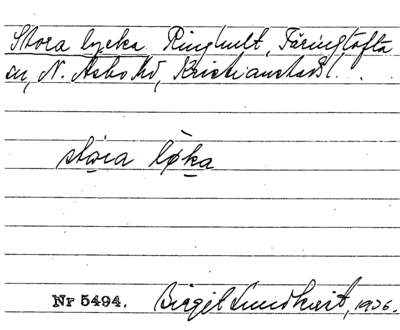 Stora lycka Ringhult, Färingtofta
sn, N. Åsbo hd, Kristianstads l.
stora lø̀ka
Nr 5494. Birgit Lundkvist, 1936.